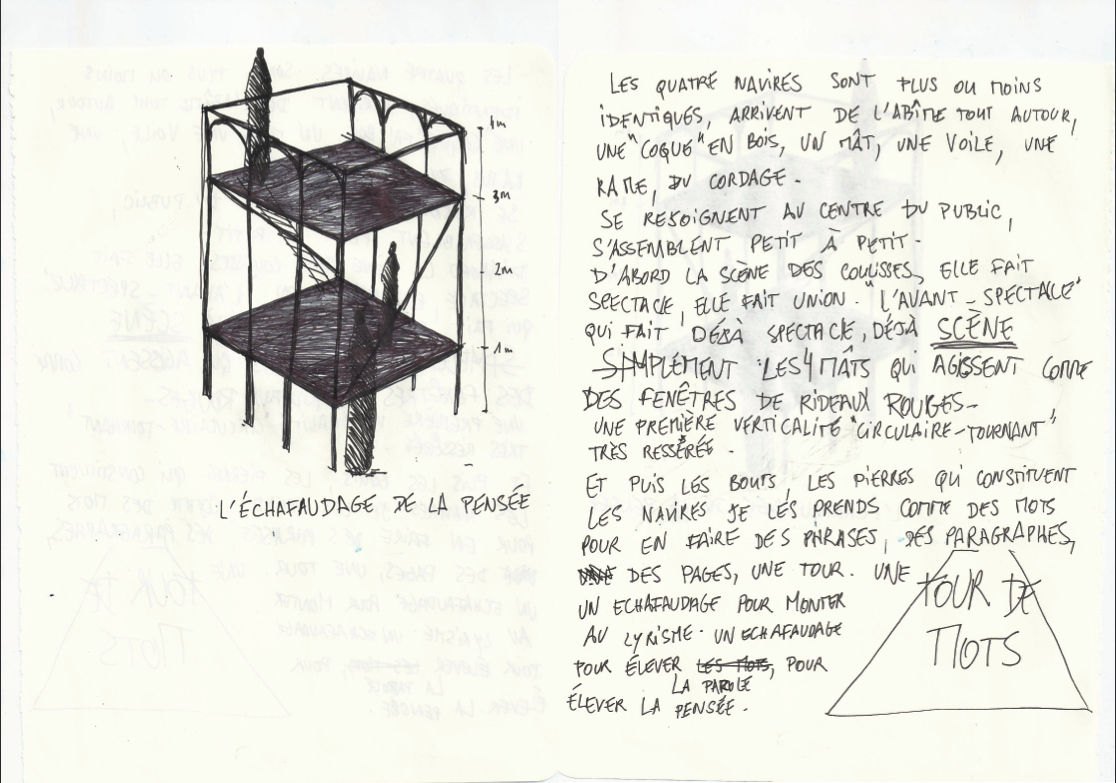 4m
3m
2m
1m
L'ÉCHAFAUDAGE DE LA PENSÉE
LES QUATRE NAVIRES SONT PLUS OU MOINS
IDENTIQUES, ARRIVENT DE L'ABÎME TOUT AUTOUR,
UNE "COQUE" EN BOIS, UN MÂT, UNE VOILE, UNE
RAME, DU CORDAGE.
SE REJOIGNENT AU CENTRE DU PUBLIC,
S'ASSEMBLENT PETIT À PETIT.
D'ABORD LA SCÈNE DES COULISSES. ELLE FAIT
SPECTACLE, ELLE FAIT UNION. "L'AVANT-SPECTACLE"
QUI FAIT DÉJÀ SPECTACLE, DÉJÀ SCÈNE
SIMPLEMENT LES 4 MÂTS QUI AGISSENT COMME
DES FENÊTRES DE RIDEAUX ROUGES-
UNE PREMIÈRE VERTICALITÉ "CIRCULAIRE-TOURNANT"
TRÈS RESSÉRÉE.
ET PUIS LES BOUTS, LES PIERRES QUI CONSTITUENT
LES NAVIRES JE LES PRENDS COMME DES MOTS
POUR EN FAIRE DES PHRASES, DES PARAGRAPHES,
DES PAGES, UNE TOUR. UNE TOUR DE MOTS
UN ECHAFAUDAGE POUR MONTER
AU LYRISME. UN ECHAFAUDAGE
POUR ÉLEVER LES MOTS, POUR
LA PAROLE
ÉLEVER LA PENSÉE.